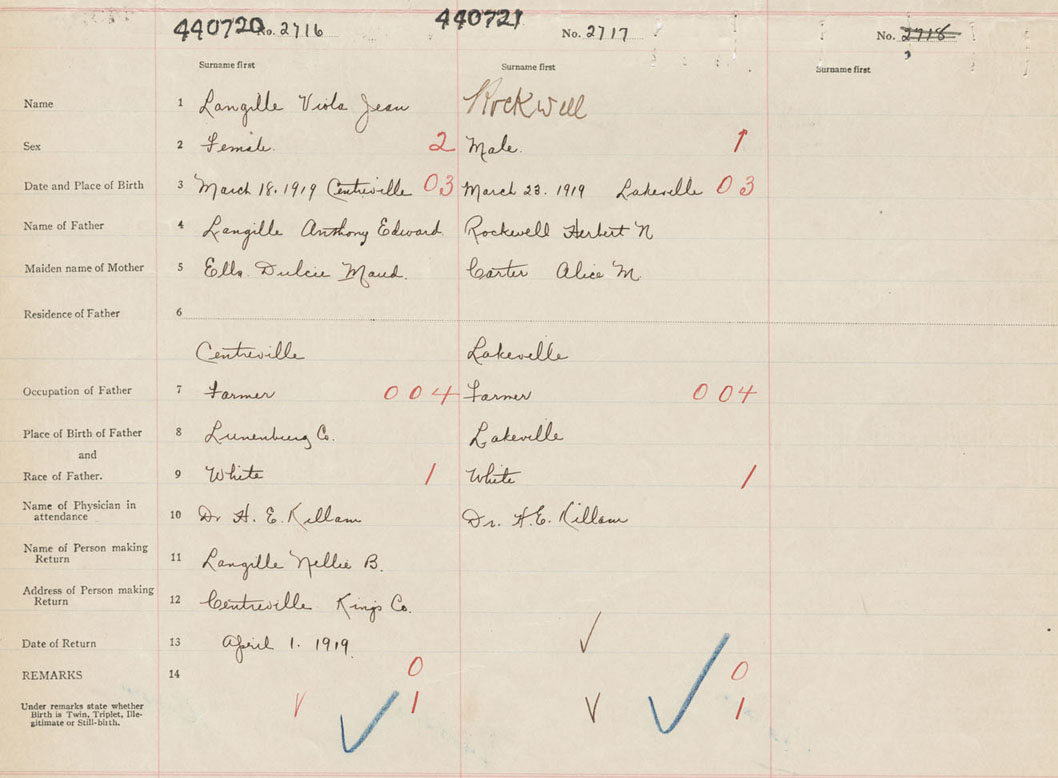 440720 No. 2716 440721 No. 2717 No. 2718
Surname first Surname first Surname first
Name 1 Langille Viola Jean Rockwell
Sex 2 Female. 2 Male. 1
Date and Place of Birth 3 March 18. 1919 Centreville 03 March 23. 1919 Lakeville 03
Name of Father 4 Langille Anthony Edward Rockwell Herbert N
Maiden name of Mother 5 Ells. Dulcie Maud. Carter Alice M.
Residence of Father 6
Centreville Lakeville
Occupation of Father 7 Farmer 004 Farmer 004
Place of Birth of Father 8 Lunenburg Co. Lakeville
and
Race of Father. 9 White 1 White 1
Name of Physician in
attendance 10 Dr H. E. Killam Dr. H.E. Killam
Name of Person making
Return 11 Langille Nellie B.
Address of Person making
Return 12 Centreville Kings Co.
Date of Return 13 April 1. 1919
REMARKS 14 0 0
Under remarks state whether
Birth is Twin, Triplet, Ille-
gitimate or Still-birth. 1 1